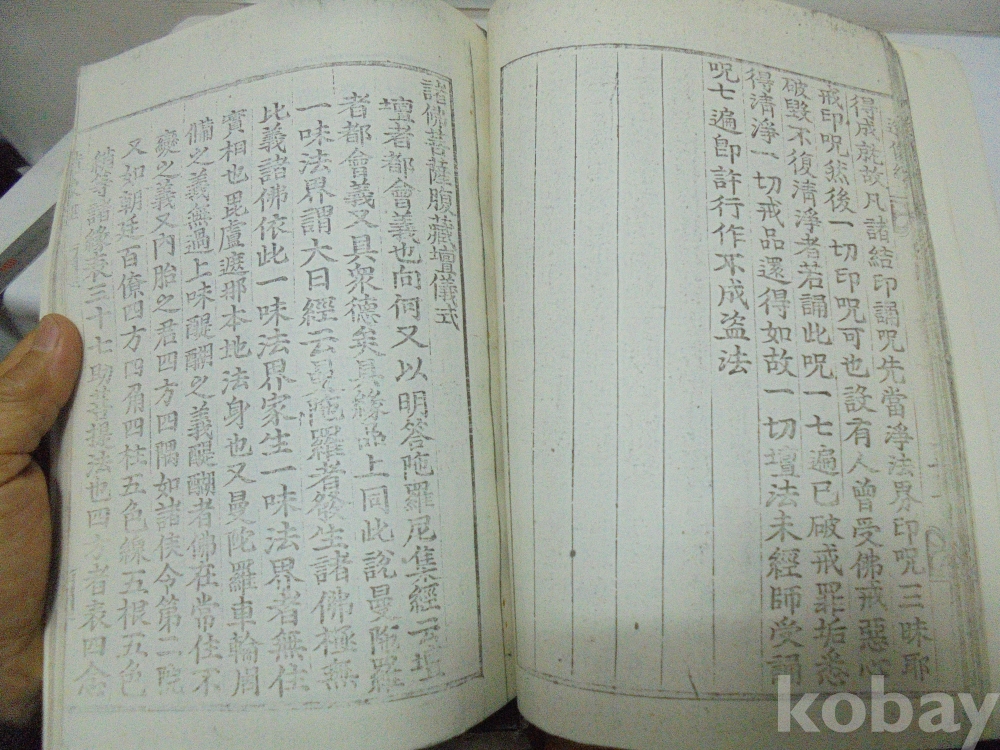 得成就故凡諸結印誦呪先當淨法界印呪三昧耶
戒印呪然後一切印呪可也設有人曾受佛戒惡心
破毀不復清淨者若誦此呪一七遍已破戒罪垢悉
得清淨一切戒品還得如故一切壇法未經師受誦
呪七遍卽許行作不成盜法
諸佛菩薩腹藏壇儀式
壇者都會義也向何又以明答陁羅尼集經云壇
者都會義又具衆德矣具緣品上同此說曼陁羅
一味法界謂大日經云曼陁羅者發生諸佛極無
比義諸佛依此一味法界家生一味法界者無住
實相也毘盧遮那本地法身也又曼陀羅車輪周
備之義無過上味醍醐之義醍醐者佛在常住不
變之義又內胎之君四方四隅如諸侯令第二院
又如朝廷百僚四方四角四柱五色線五根五色
幡等諸緣表三十七助菩提法也四方者表四念
kobay